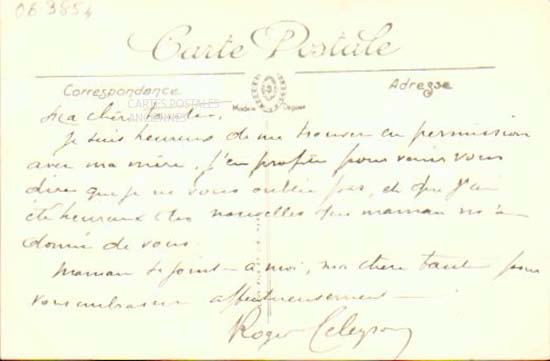 063854
Carte Postale
Correspondance
Adresse
CARTES POSTALES
ANCIENNES
Ma chère tante,
Je suis heureux de me trouver en permission
avec ma mère, j'en profite pour venir vous
dire que je ne vous oublie pas, et que j'ai
été heureux des nouvelles que maman m'a
donné de vous.
Maman se joint à moi, ma chère tante pour
vous embrasser affectueusement
Roger